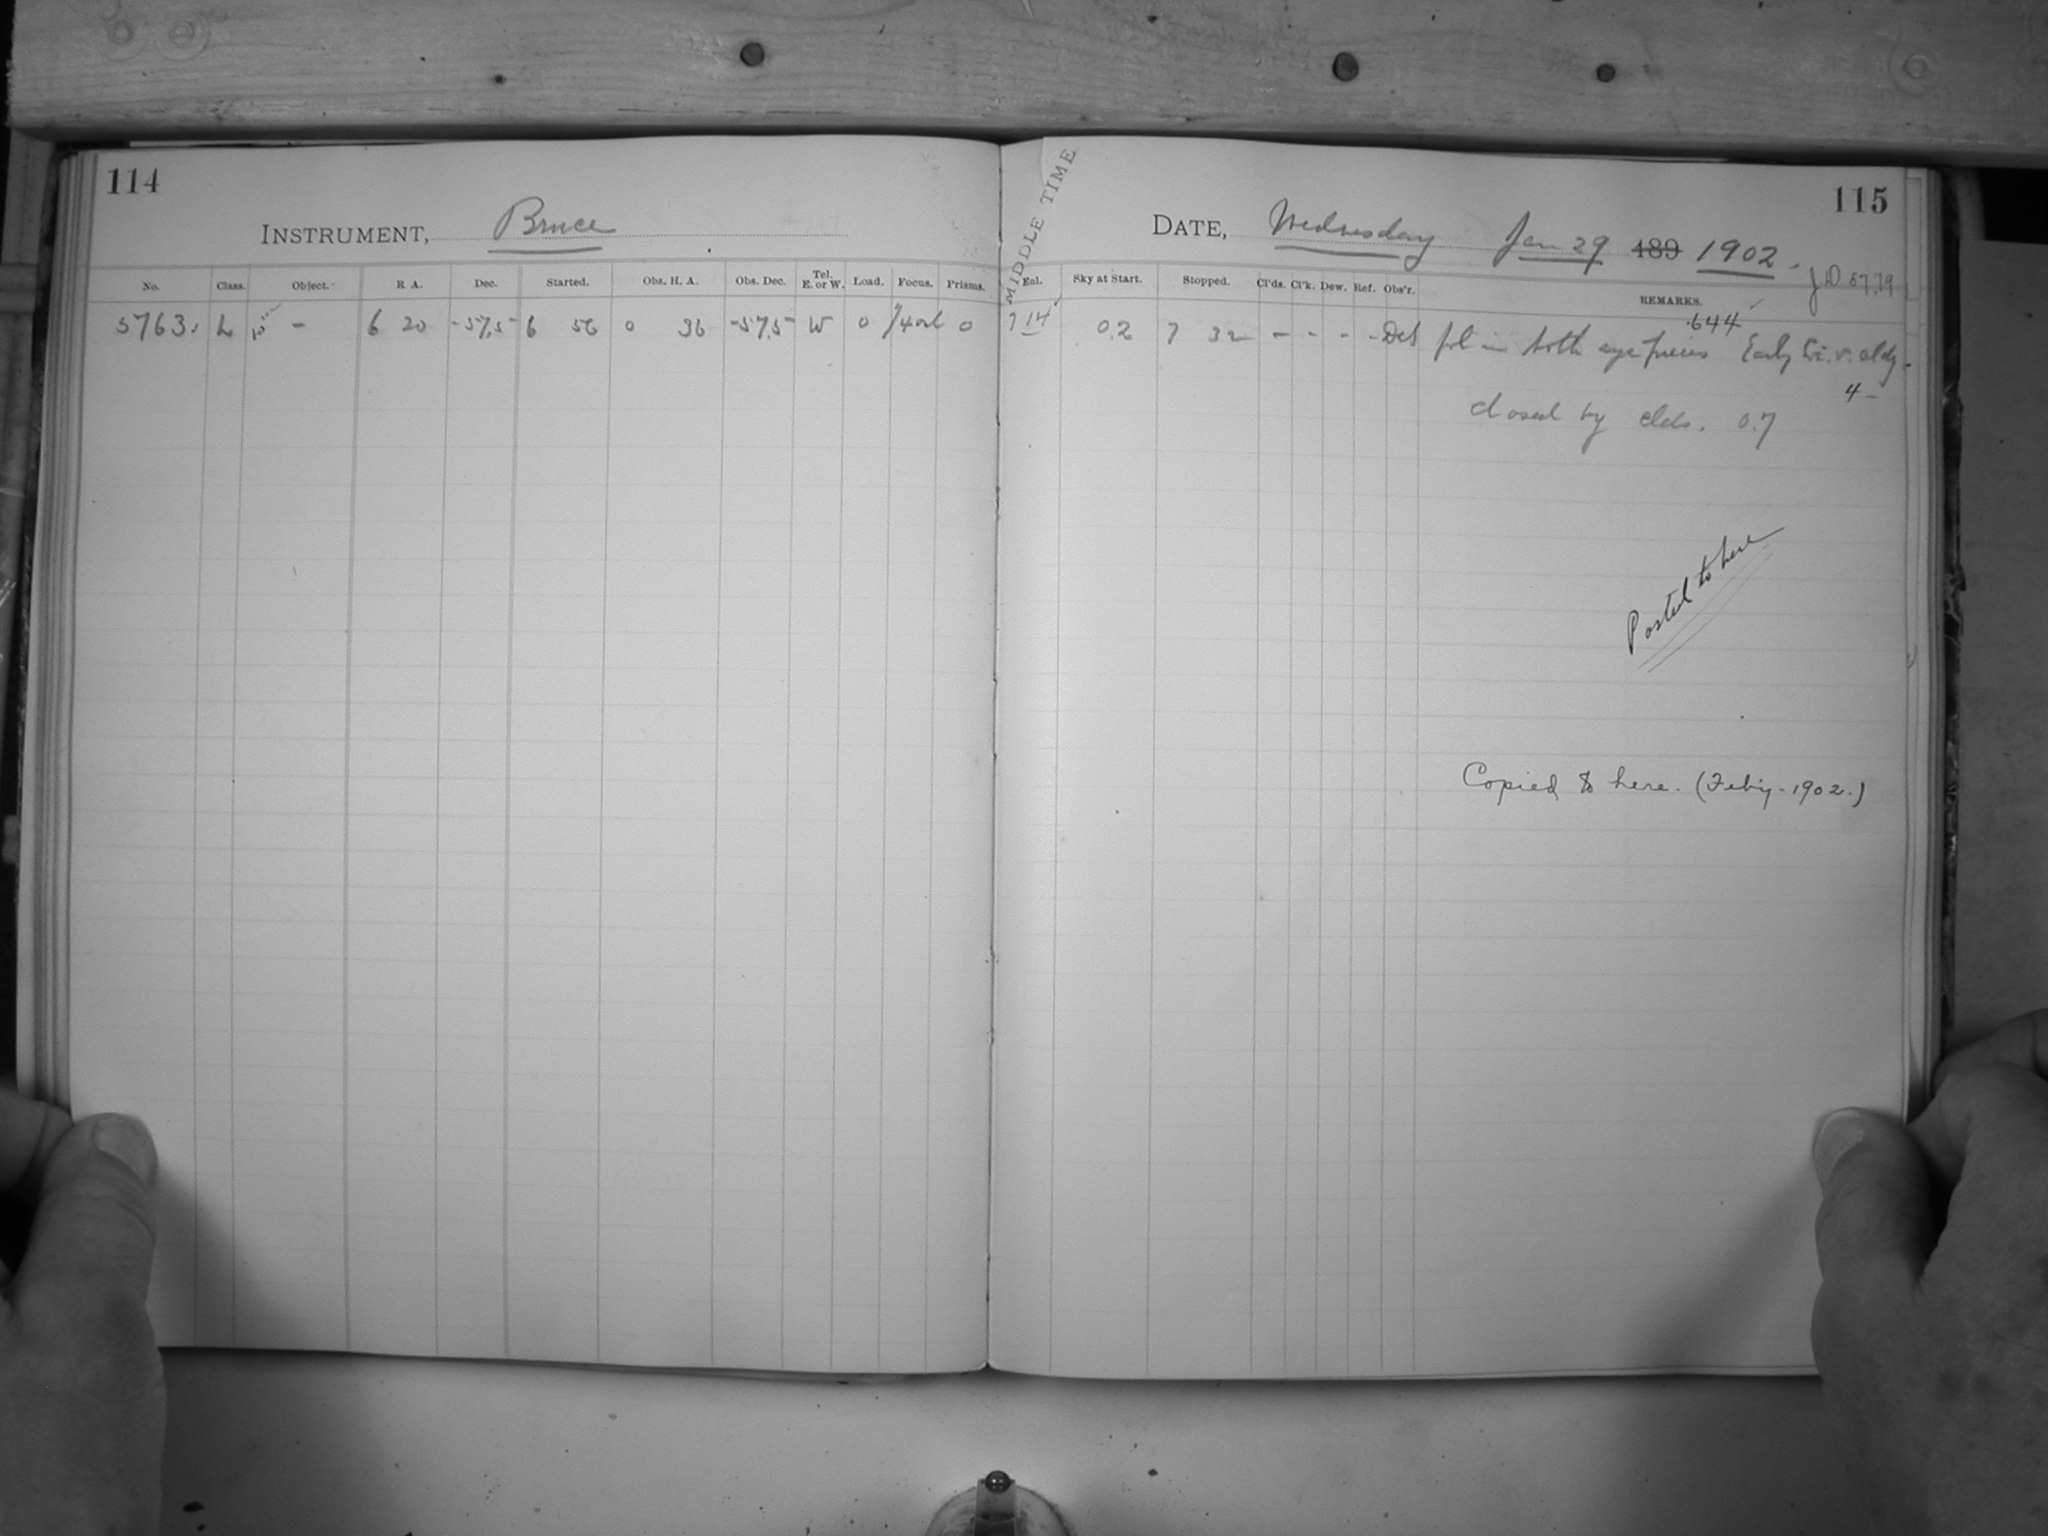 114
INSTRUMENT, Bruce
No. Class. Object. R. A. Dec. Started. Obs. H. A. Obs. Dec. Tel. E. or W. Load. Focus. Prisms.
5763. L - 6 20 -57.5 6 56 0 36 -57.5 W 0 0
MIDDLE TIME
115
DATE, Wednesday Jan 29 189 1902.
JD 5779
Enl. Sky at Start. Stopped. Cl'ds. Cl'k. Dew. Ref. Obs'r. REMARKS.
7 14 0.2 7 32 - - - - in both eye pieces Early
.644
4-
closed by clds. 0.7
Posted to here
Copied to here. (Feb'y-1902.)